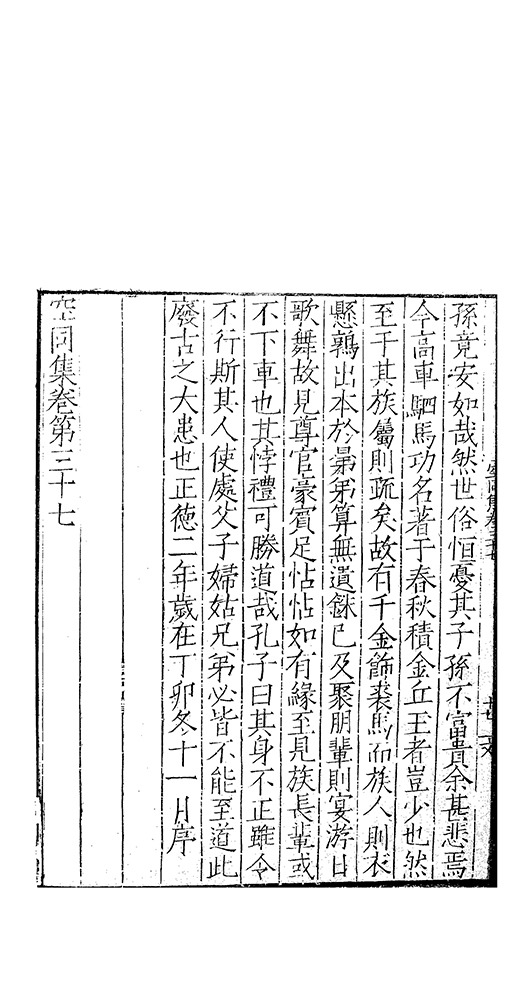 孫竟安如哉然世俗恒憂其子孫不富貴余甚悲焉
今高車駟馬功名著于春秋積金丘王者豈少也然
至于其族屬則疏矣故有千金飾裘馬而族人則衣
懸鶉出本於晜弟算無遺銖已及聚朋輩則宴游日
歌舞故見尊官豪賓足怗怗如有緣至見族長輩或
不下車也其悖禮可勝道哉孔子曰其身不正雖令
不行斯其人使處父子婦姑兄弟必皆不能至道此
廢古之大患也正德二年歲在丁卯冬十一月序
空同集卷第三十七